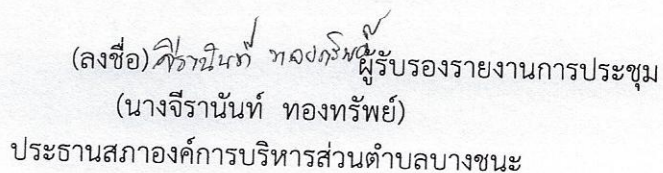 (ลงชื่อ) จีรานันท์ ทองทรัพย์ ผู้รับรองรายงานการประชุม
(นางจีรานันท์ ทองทรัพย์)
ประธานสภาองค์การบริหารส่วนตำบลบางชนะ